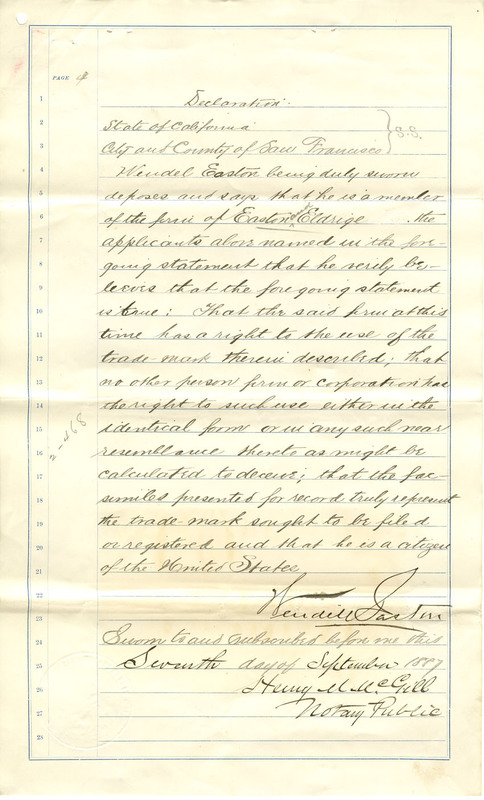 PAGE 4
1 Declaration.
2 State of California
3 City and County of San Francisco } S.S.
4 Wendel Easton being duly sworn
5 deposes and says that he is a member
6 of the firm of Easton & Eldrige the
7 applicants above named in the fore-
8 going statement that he verily be-
9 leeves that the foregoing statement
10 is true: That the said firm at this
11 time has a right to the use of the
12 trade mark therein described; that
13 no other person firm or corporation has
14 the right to such use either in the
15 identical form or in any such near
16 resemblance thereto as might be
17 calculated to deceive; that the fac-
18 similes presented for record truly represent
19 the trade mark sought to be filed
20 or registered and that he is a citizen
21 of the United States
22
23 Wendell Easton
24 Sworn to and subscribed before me this
25 Seventh day of September 1887
26 Henry M McGill
27 Notary Public
28
2-468